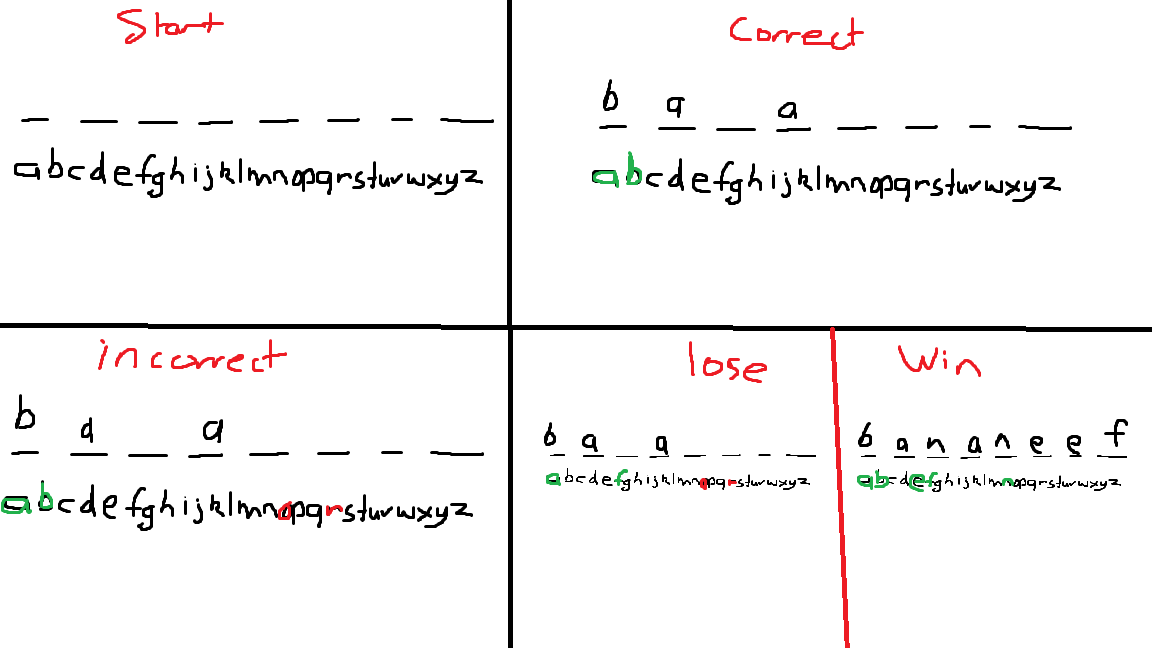 Start
abcdefghijklmnopqrstuvwxyz
Correct
b a a
abcdefghijklmnopqrstuvwxyz
incorrect
b a a
abcdefghijklmnopqrstuvwxyz
lose
b a a
abcdefghijklmnopqrstuvwxyz
Win
b a n a n e e f
abcdefghijklmnopqrstuvwxyz